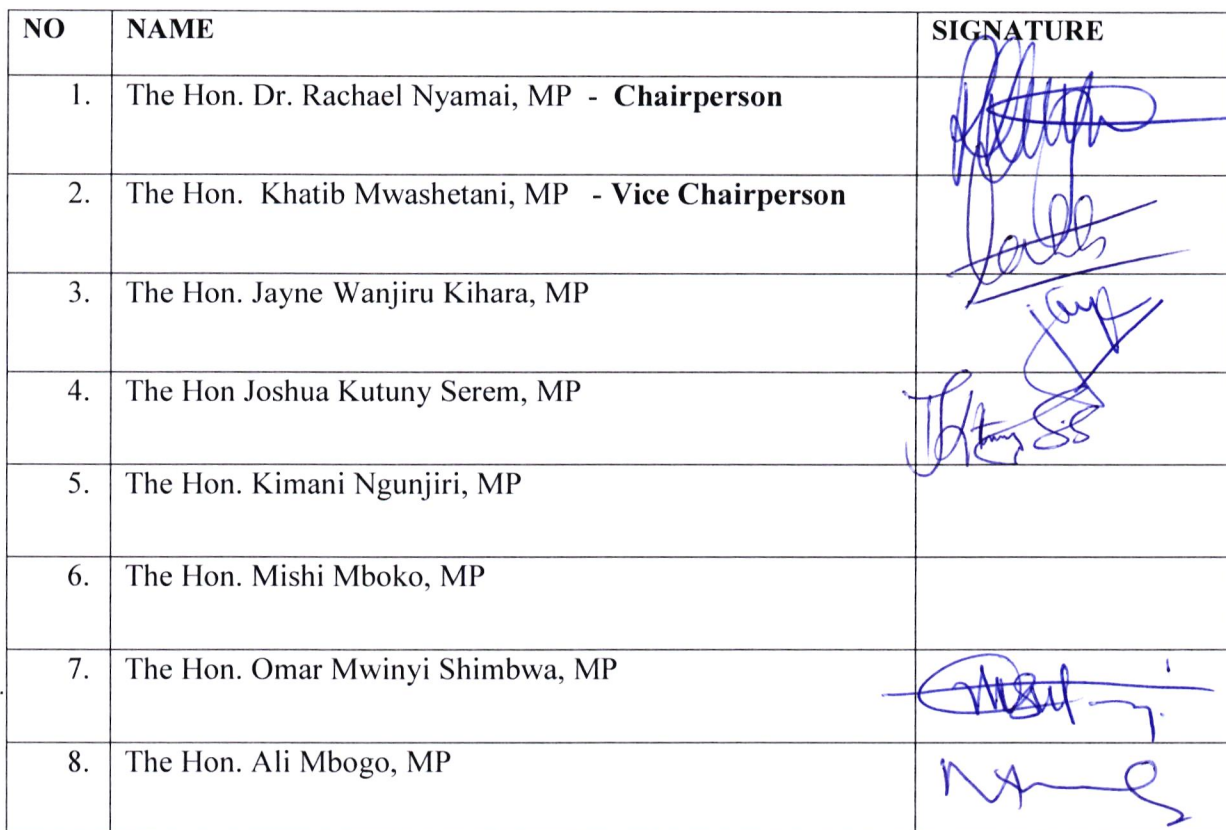 NO NAME SIGNATURE
1. The Hon. Dr. Rachael Nyamai, MP - Chairperson
2. The Hon. Khatib Mwashetani, MP - Vice Chairperson
3. The Hon. Jayne Wanjiru Kihara, MP
4. The Hon Joshua Kutuny Serem, MP
5. The Hon. Kimani Ngunjiri, MP
6. The Hon. Mishi Mboko, MP
7. The Hon. Omar Mwinyi Shimbwa, MP
8. The Hon. Ali Mbogo, MP